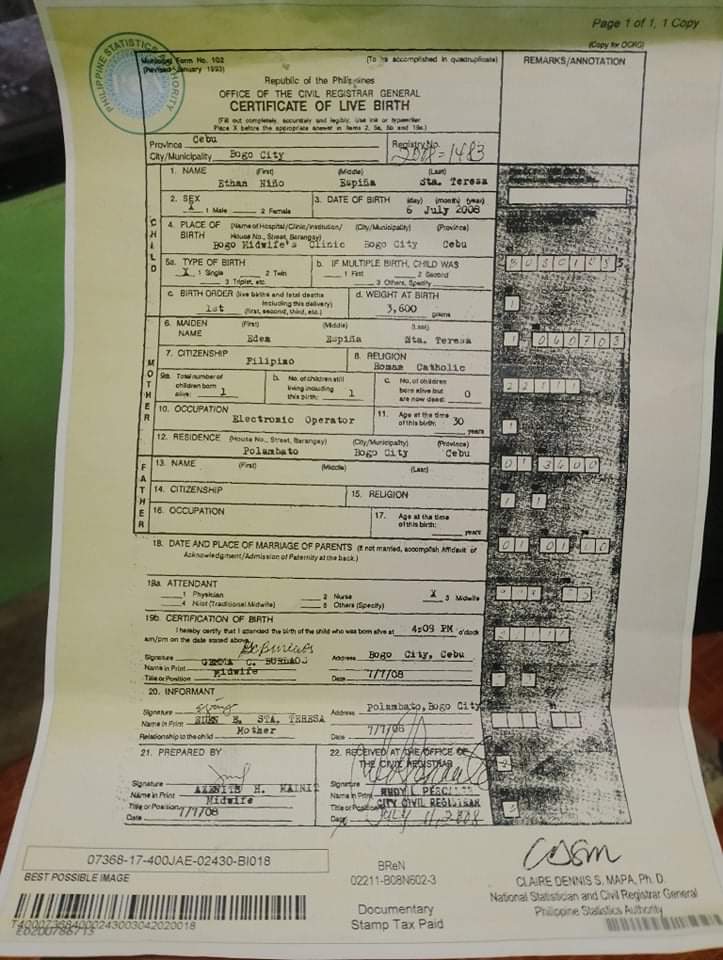 Page 1 of 1, 1 Copy
(Copy for OCRG)
PHILIPPINE STATISTICS AUTHORITY
Municipal Form No. 102 (To be accomplished in quadruplicate) REMARKS/ANNOTATION
(Revised January 1993)
Republic of the Philippines
OFFICE OF THE CIVIL REGISTRAR GENERAL
CERTIFICATE OF LIVE BIRTH
(Fill out completely, accurately and legibly. Use ink or typewriter.
Place X before the appropriate answer in items 2, 5a, 5b and 19a.)
Province Cebu Registry No.
City/Municipality Bogo City 2008-1483
1. NAME (First) (Middle) (Last)
Ethan Niño Espiña Sta. Teresa
2. SEX 3. DATE OF BIRTH (day) (month) (year)
X 1 Male 2 Female 6 July 2008
CHILD
4. PLACE OF BIRTH (Name of Hospital/Clinic/Institution/ (City/Municipality) (Province)
House No., Street, Barangay)
Bogo Midwife's Clinic Bogo City Cebu
5a. TYPE OF BIRTH b. IF MULTIPLE BIRTH, CHILD WAS
X 1 Single 2 Twin 1 First 2 Second
3 Triplet, etc. 3 Others, Specify
c. BIRTH ORDER (live births and fetal deaths including this delivery) d. WEIGHT AT BIRTH
1st (first, second, third, etc.) 3,600 grams
MOTHER
6. MAIDEN NAME (First) (Middle) (Last)
Eden Espiña Sta. Teresa
7. CITIZENSHIP 8. RELIGION
Filipino Roman Catholic
9a. Total number of children born alive: 1 b. No. of children still living including this birth: 1 c. No. of children born alive but are now dead: 0
10. OCCUPATION 11. Age at the time of this birth: 30 years
Electronic Operator
12. RESIDENCE (House No., Street, Barangay) (City/Municipality) (Province)
Polambato Bogo City Cebu
FATHER
13. NAME (First) (Middle) (Last)
14. CITIZENSHIP 15. RELIGION
16. OCCUPATION 17. Age at the time of this birth: years
18. DATE AND PLACE OF MARRIAGE OF PARENTS (If not married, accomplish Affidavit of
Acknowledgment/Admission of Paternity at the back.)
19a. ATTENDANT
1 Physician 2 Nurse X 3 Midwife
4 Hilot (Traditional Midwife) 5 Others (Specify)
19b. CERTIFICATION OF BIRTH
I hereby certify that I attended the birth of the child who was born alive at 4:09 PM o'clock
am/pm on the date stated above.
Signature Address Bogo City, Cebu
Name in Print GEMMA C. BURDAOS
Title or Position Midwife Date 7/7/08
20. INFORMANT
Signature Address Polambato, Bogo City
Name in Print EDEN E. STA. TERESA
Relationship to the child Mother Date 7/7/08
21. PREPARED BY 22. RECEIVED AT THE OFFICE OF THE CIVIL REGISTRAR
Signature Signature
Name in Print H. Name in Print RUDY L.
Title or Position Midwife Title or Position CITY CIVIL REGISTRAR
Date 7/7/08 Date JULY 11, 2008
07368-17-400JAE-02430-BI018
BEST POSSIBLE IMAGE
BReN
02211-B08N602-3
Documentary
Stamp Tax Paid
CLAIRE DENNIS S. MAPA, Ph. D.
National Statistician and Civil Registrar General
Philippine Statistics Authority
T400073684000243003042020018